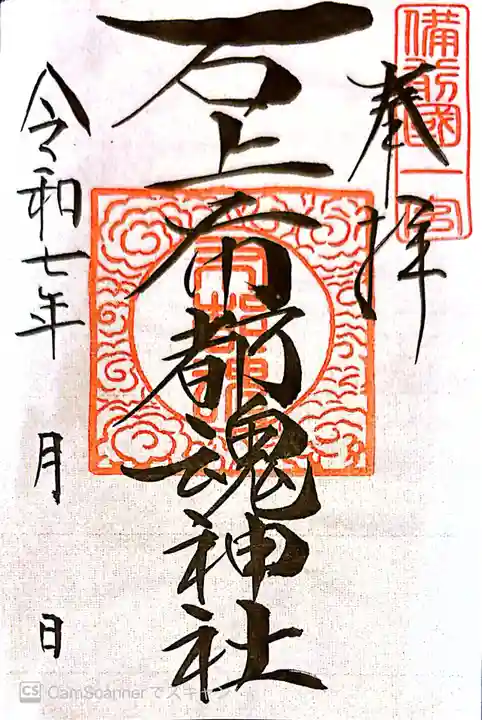 備前國一宮
奉拝
石上布都魂神社
令和七年 月 日
CS CamScanner でスキャン